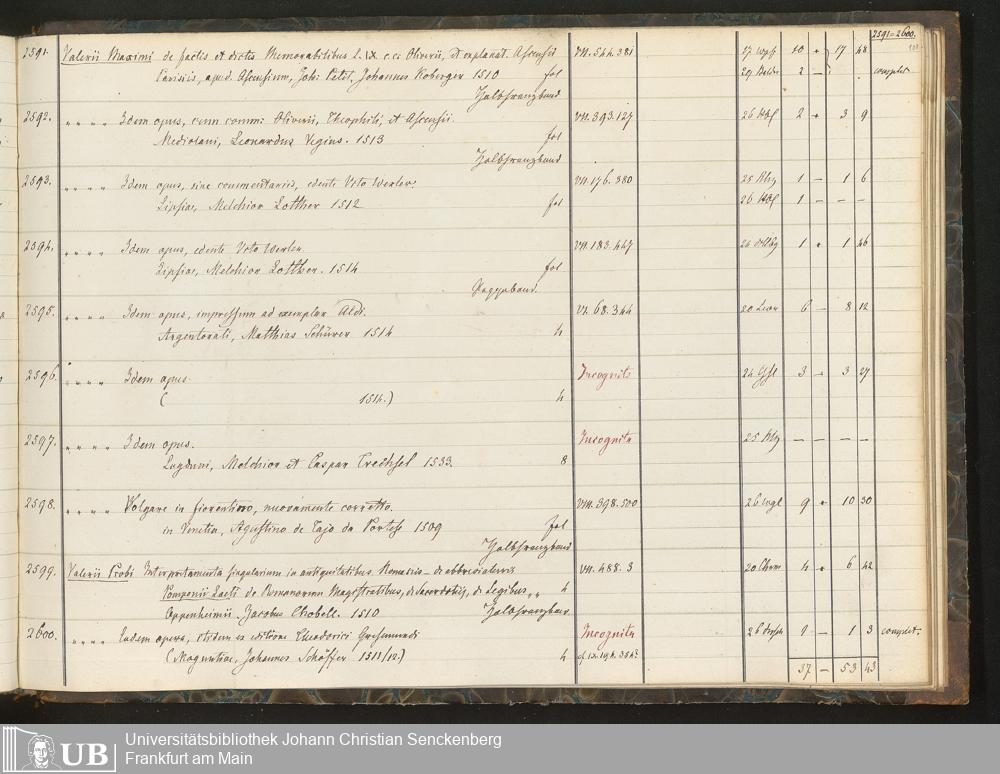 2591=2600.
2591. Valerii Maximi de factis et dictis Memorabilibus l. IX. c. c: Oliverii, et explanat. Ascensii VII. 544. 381 10 17 48
Parisiis, apud Ascensium, Joh: Petit, Johannes Koberger 1510 fol 2 — complet.
Halbfranzband
2592. " " " " Idem opus, cum comm: Oliverii, Theophili, et Ascensii. VII. 393. 127 26 2 3 9
Mediolani, Leonardus Vegius. 1513 fol
Halbfranzband
2593. " " " " Idem opus, sine commentariis, edente Vito Werler. VII. 176. 380 25 1 — 1 6
Lipsiae, Melchior Lotther 1512 fol 26 1 — — —
2594. " " " " Idem opus, edente Vito Werler. VII. 183. 447 1 1 46
Lipsiae, Melchior Lotther. 1514 fol
Pappband.
2595. " " " " Idem opus, impressum ad exemplar Aldi. VI. 68. 344 20 6 — 8 12
Argentorati, Matthias Schürer 1514 4
2596. " " " " Idem opus. Incognito 24 3 3 27
( 1514.) 4
2597. " " " " Idem opus. Incognita 25 — — — —
Lugduni, Melchior et Caspar Trechsel 1533. 8
2598. " " " " Volgare in fiorentino, nuovamente corretto. VIII. 398. 500 26 9 10 30
in Venetia, Agustino de Zajo da Portese 1509 fol
Halbfranzband
2599. Valerii Probi Interpretamenta singularium in antiquitatibus Romanis — de abbreviaturis VII. 488. 3 20 4 6 42
Pomponii Laeti de Romanorum Magistratibus, de Sacerdotiis, de Legibus „ 4
Oppenheimii. Jacobus Chobell. 1510 Halbfranzband
2600. " " " " Eadem opera, etidem ex editione Theodorici Gresmundi Incognita 26 1 — 1 3 complet.
(Moguntiae, Johannes Schöffer 1511/12.) 4
37 — 53 43
UB Universitätsbibliothek Johann Christian Senckenberg
Frankfurt am Main